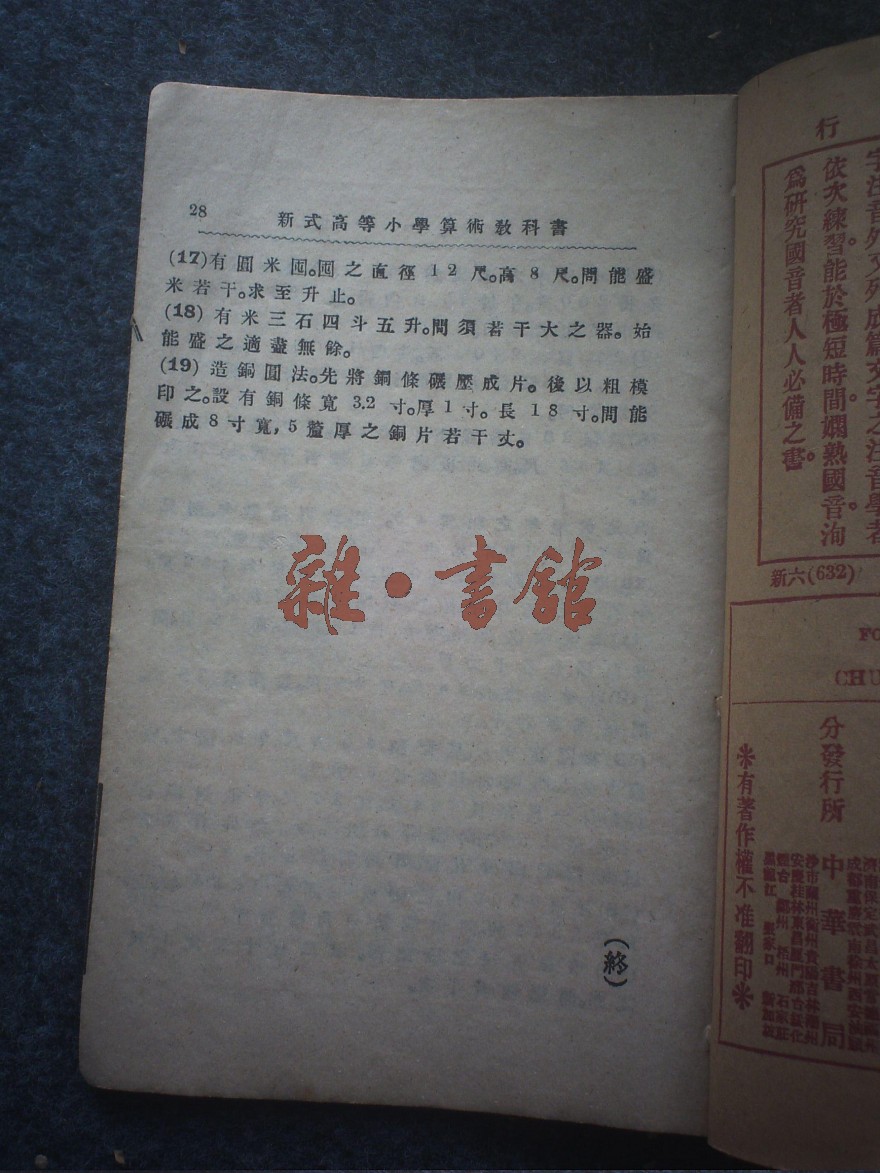 28
新式高等小學算術教科書
(17)有圓米囤。囤之直徑12尺。高8尺。問能盛
米若干。求至升止。
(18)有米三石四斗五升。問須若干大之器。始
能盛之適盡無餘。
(19)造銅圓法。先將銅條碾壓成片。後以粗模
印之。設有銅條寬3.2寸。厚1寸。長18寸。問能
碾成8寸寬,5釐厚之銅片若干丈。
雜·書館
(終)
行
字注音外又列成篇文字之注音學者
依次練習。能於極短時間嫻熟國音。洵
爲研究國音者人人必備之書。
新六(632)
FO
CHU
分發行所
中華書局
※有著作權不准翻印※